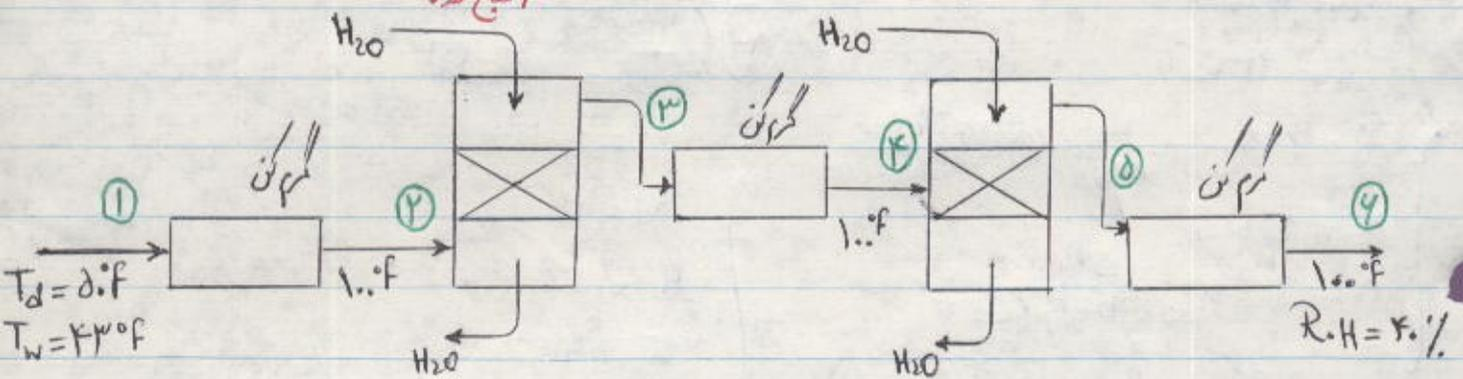 H₂O
H₂O
گرم کن
گرم کن
گرم کن
①
②
③
④
⑤
⑥
T_d = ۵۰°F
T_w = ۴۳°F
۱۰۰°F
۱۰۰°F
۱۰۰°F
R.H = ۴۰%
H₂O
H₂O